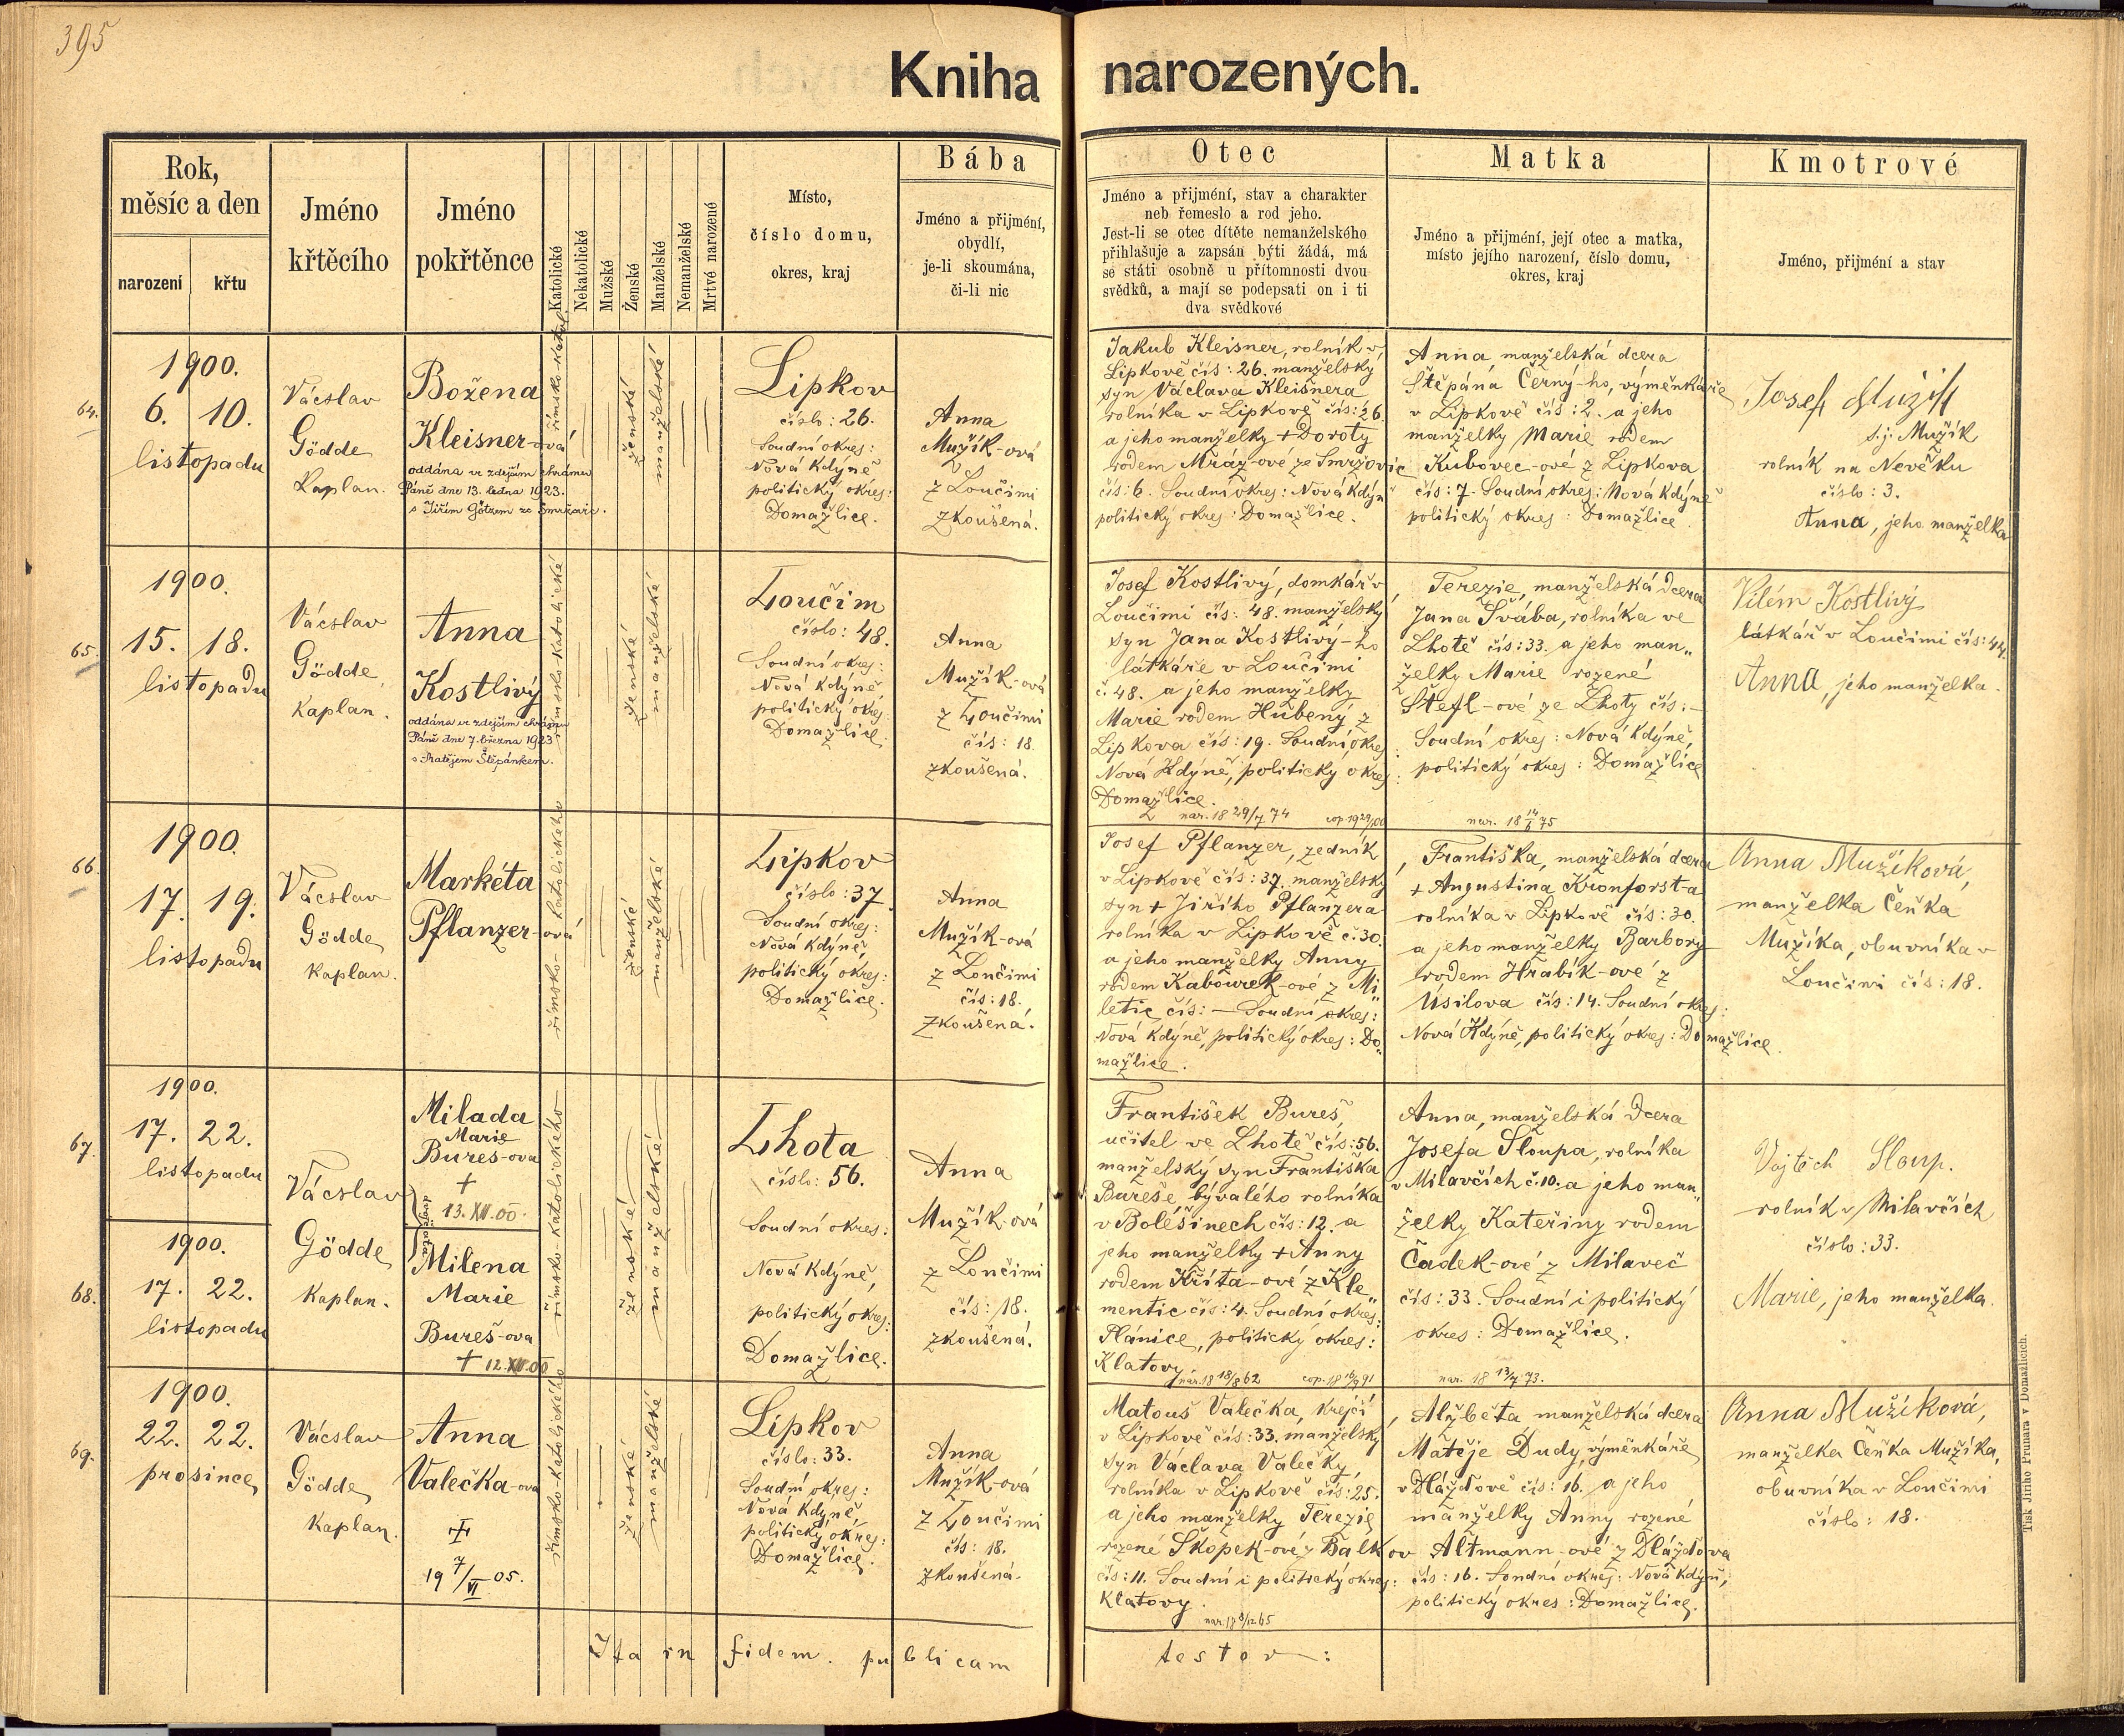 395
Kniha narozených.
Rok,
měsíc a den
narození
křtu
Jméno
křtěcího
Jméno
pokřtěnce
Katolické
Nekatolické
Mužské
Ženské
Manželské
Nemanželské
Mrtvé narozené
Místo,
číslo domu,
okres, kraj
Bába
Jméno a přijmění,
obydlí,
je-li skoumána,
či-li nic
Otec
Jméno a přijmění, stav a charakter
neb řemeslo a rod jeho.
Jest-li se otec dítěte nemanželského
přihlašuje a zapsán býti žádá, má
se státi osobně u přítomnosti dvou
svědků, a mají se podepsati on i ti
dva svědkové
Matka
Jméno a přijmění, její otec a matka,
místo jejího narození, číslo domu,
okres, kraj
Kmotrové
Jméno, přijmění a stav
64.
1900.
6. 10.
listopadu
Vácslav
Gödde
Kaplan.
Božena
Kleisner-ová
oddána ve zdejším chrámu
Páně dne 13. ledna 1923.
s Jiřím Götzem ze
římsko-katol.
ženské
manželské
Lipkov
číslo: 26.
Soudní okres:
Nová Kdýně
politický okres:
Domažlice.
Anna
Mužík-ová
z Loučimi
zkoušená.
Jakub Kleisner, rolník v
Lipkově čís: 26. manželský
syn Václava Kleisnera
rolníka v Lipkově čís: 26.
a jeho manželky + Doroty
rodem Mráz-ové ze Smržovic
čís: 6. Soudní okres: Nová Kdýně
politický okres: Domažlice.
Anna manželská dcera
Štěpána Černý-ho, výměnkáře
v Lipkově čís: 2. a jeho
manželky Marie rodem
Kubovec-ové z Lipkova
čís: 7. Soudní okres: Nová Kdýně
politický okres: Domažlice.
Josef Mužik
s.j. Mužík
rolník na Nevěku
číslo: 3.
Anna, jeho manželka
65.
1900.
15. 18.
listopadu
Vácslav
Gödde,
Kaplan.
Anna
Kostlivý
oddána ve zdejším chrámu
Páně dne 7. března 1923
s Matějem Štěpánkem.
římsko-katolické
ženské
manželské
Loučim
číslo: 48.
Soudní okres:
Nová Kdýně,
politický okres
Domažlice.
Anna
Mužík-ová
z Loučimi
čís: 18.
zkoušená.
Josef Kostlivý, domkář v
Loučimi čís: 48. manželský
syn Jana Kostlivý-ho
látkáře v Loučimi
č. 48. a jeho manželky
Marie rodem Hubený z
Lipkova čís: 19. Soudní okres
Nová Kdýně, politický okres:
Domažlice.
nar. 18 29/7 74
Terezie, manželská dcera
Jana Švába, rolníka ve
Lhotě čís: 33. a jeho man„
želky Marie rozené
Štefl-ové ze Lhoty čís: –
Soudní okres: Nová Kdýně,
politický okres: Domažlice
nar. 18 14/6 75
Vilém Kostlivý
látkář v Loučimi čís: 44.
Anna, jeho manželka.
66.
1900.
17. 19.
listopadu
Vácslav
Gödde
Kaplan.
Markéta
Pflanzer-ová
římsko-katolického
ženské
manželské
Lipkov
číslo: 37
Soudní okres:
Nová Kdýně,
politický okres:
Domažlice.
Anna
Mužík-ová
z Loučimi
čís: 18.
zkoušená.
Josef Pflanzer, zedník
v Lipkově čís: 37. manželský
syn + Jiřího Pflanzera
rolníka v Lipkově č. 30.
a jeho manželky Anny
rodem Kabourek-ové z Mi„
letic čís: – Soudní okres:
Nová Kdýně, politický okres: Do„
mažlice.
Františka, manželská dcera
+ Augustina Kronforst-a
rolníka v Lipkově čís: 30.
a jeho manželky Barbory
rodem Hrabík-ové z
Úsilova čís: 14. Soudní okres:
Nová Kdýně, politický okres: Domažlice.
Anna Mužíková,
manželka Čeňka
Mužíka, obuvníka v
Loučimi čís: 18.
67.
1900.
17. 22.
listopadu
Vácslav
Gödde
Kaplan.
Milada
Marie
Bureš-ova
+
13. XII. 00.
dvojčata
68.
1900.
17. 22.
listopadu
Milena
Marie
Bureš-ova
+ 12. XII. 00
římsko-katolického
ženské
manželské
Lhota
číslo: 56.
Soudní okres:
Nová Kdýně,
politický okres:
Domažlice.
Anna
Mužík-ová
z Loučimi
čís: 18.
zkoušená.
František Bureš,
učitel ve Lhotě čís: 56.
manželský syn Františka
Bureše, bývalého rolníka
v Bolešinech čís: 12. a
jeho manželky + Anny
rodem Kříta-ové z Kle„
mentic čís: 4. Soudní okres:
Plánice, politický okres:
Klatovy.
nar. 18 18/8 62
Anna, manželská dcera
Josefa Sloupa, rolníka
v Milavčích č. 10. a jeho man„
želky Kateřiny rodem
Čadek-ové z Milaveč
čís: 33. Soudní i politický
okres: Domažlice.
nar. 18 13/7 73.
Vojtěch Sloup.
rolník v Milavčích
číslo: 33.
Marie, jeho manželka.
69.
1900.
22. 22.
prosince
Vácslav
Gödde
Kaplan.
Anna
Valečka-ova
+
19 7/VI 05.
Římsko-katolického
ženské
manželské
Lipkov
číslo: 33.
Soudní okres:
Nová Kdyně,
politický okres:
Domažlice.
Anna
Mužík-ová
z Loučimi
čís: 18.
zkoušená.
Matouš Valečka, krejčí
v Lipkově čís: 33. manželský
syn Václava Valečky,
rolníka v Lipkově čís: 25.
a jeho manželky Terezie
rozené Škopek-ové z Balkov
čís: 11. Soudní i politický okres:
Klatovy.
nar. 18 8/12 65
Alžběta manželská dcera
Matěje Dudy, výměnkáře
v Dlážďově čís: 16. a jeho
manželky Anny rozené
Altmann-ové z Dlážďova
čís: 16. Soudní okres: Nová Kdýně,
politický okres: Domažlice.
Anna Mužíková,
manželka Čeňka Mužíka,
obuvníka v Loučimi
číslo: 18.
Ita in fidem publicam testor:
Tisk Jiřího Prunara v Domažlicích.